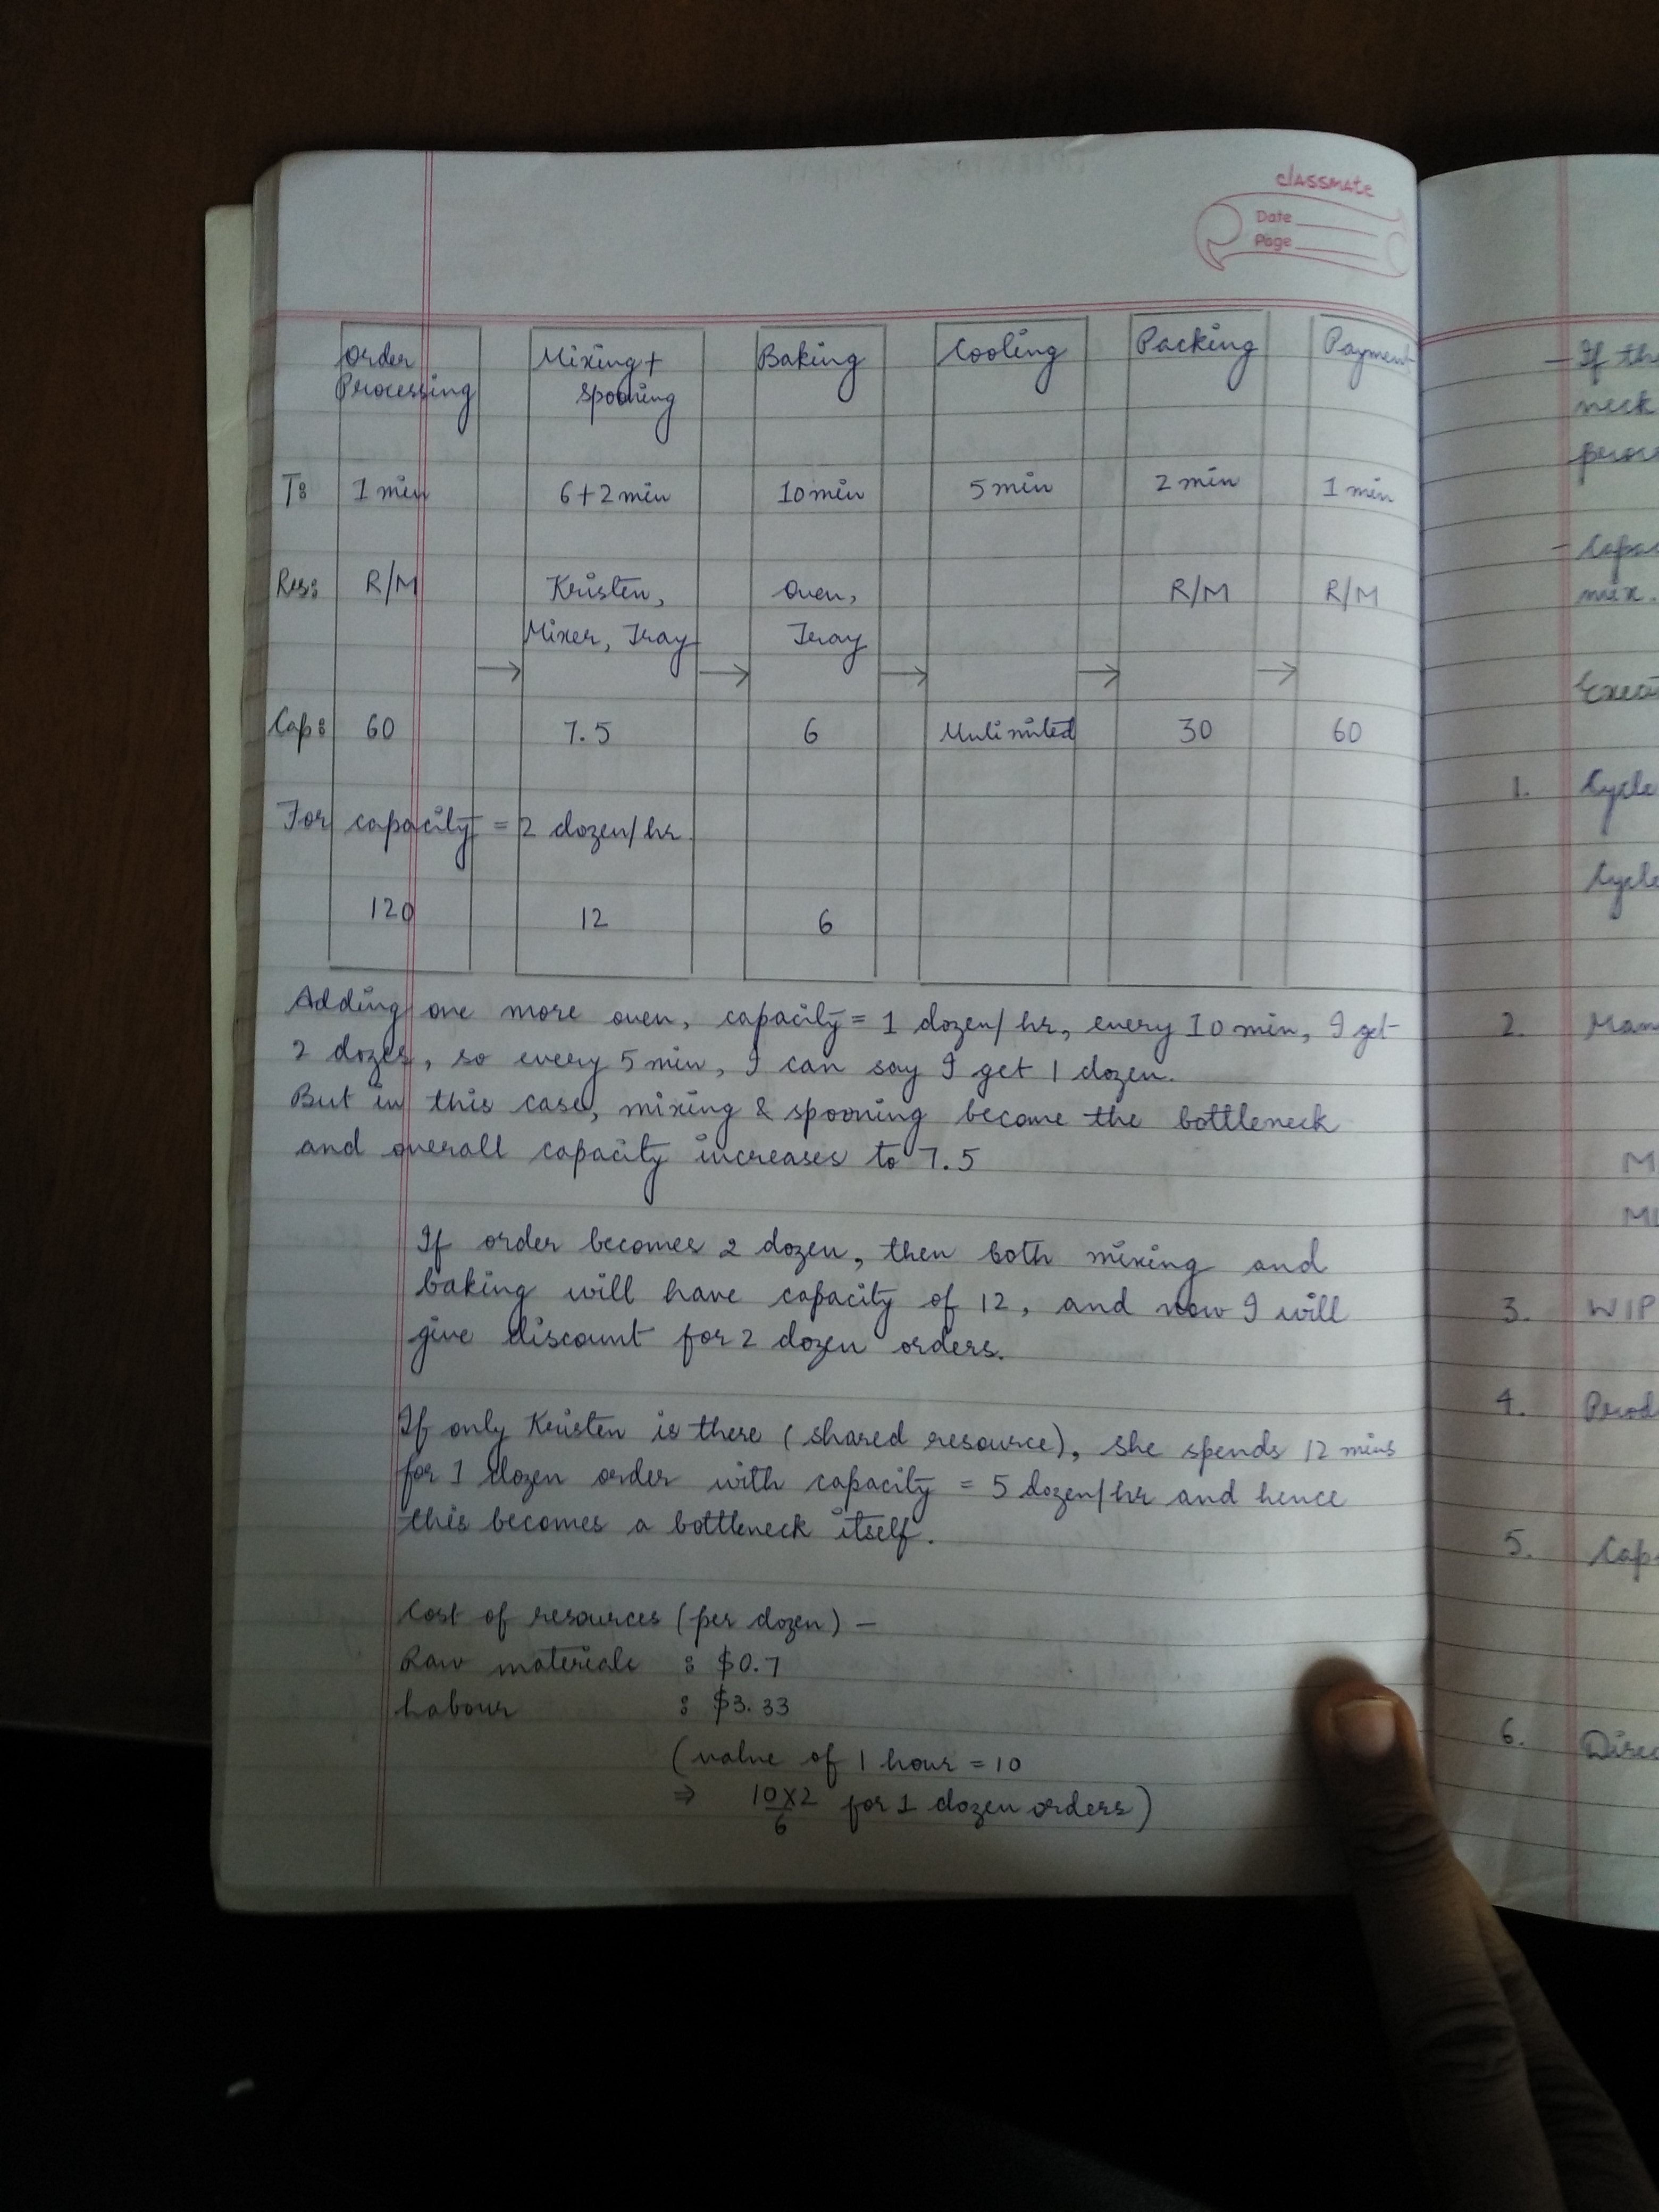 classmate
Date
Page
Order Processing | Mixing + Spooning | Baking | Cooling | Packing | Payment
T: 1 min | 6+2 min | 10 min | 5 min | 2 min | 1 min
Res: R/M | Kristen, Mixer, Tray | Oven, Tray | R/M | R/M
→ → → → →
Cap: 60 | 7.5 | 6 | Unlimited | 30 | 60
For capacity = 2 dozen/hr
120 | 12 | 6
Adding one more oven, capacity = 1 dozen/hr, every 10 min, I get
2 dozes, so every 5 min, I can say I get 1 dozen.
But in this case, mixing & spooning become the bottleneck
and overall capacity increases to 7.5
If order becomes 2 dozen, then both mixing and
baking will have capacity of 12, and now I will
give discount for 2 dozen orders.
If only Kristen is there (shared resource), she spends 12 mins
for 1 dozen order with capacity = 5 dozen/hr and hence
this becomes a bottleneck itself.
Cost of resources (per dozen) –
Raw materials : $0.7
Labour : $3.33
(value of 1 hour = 10
⇒ 10x2/6 for 1 dozen orders)
– If the
neck
–
mix.
1. Cycle
Cycle
2.
3. WIP
4.
5.
6.